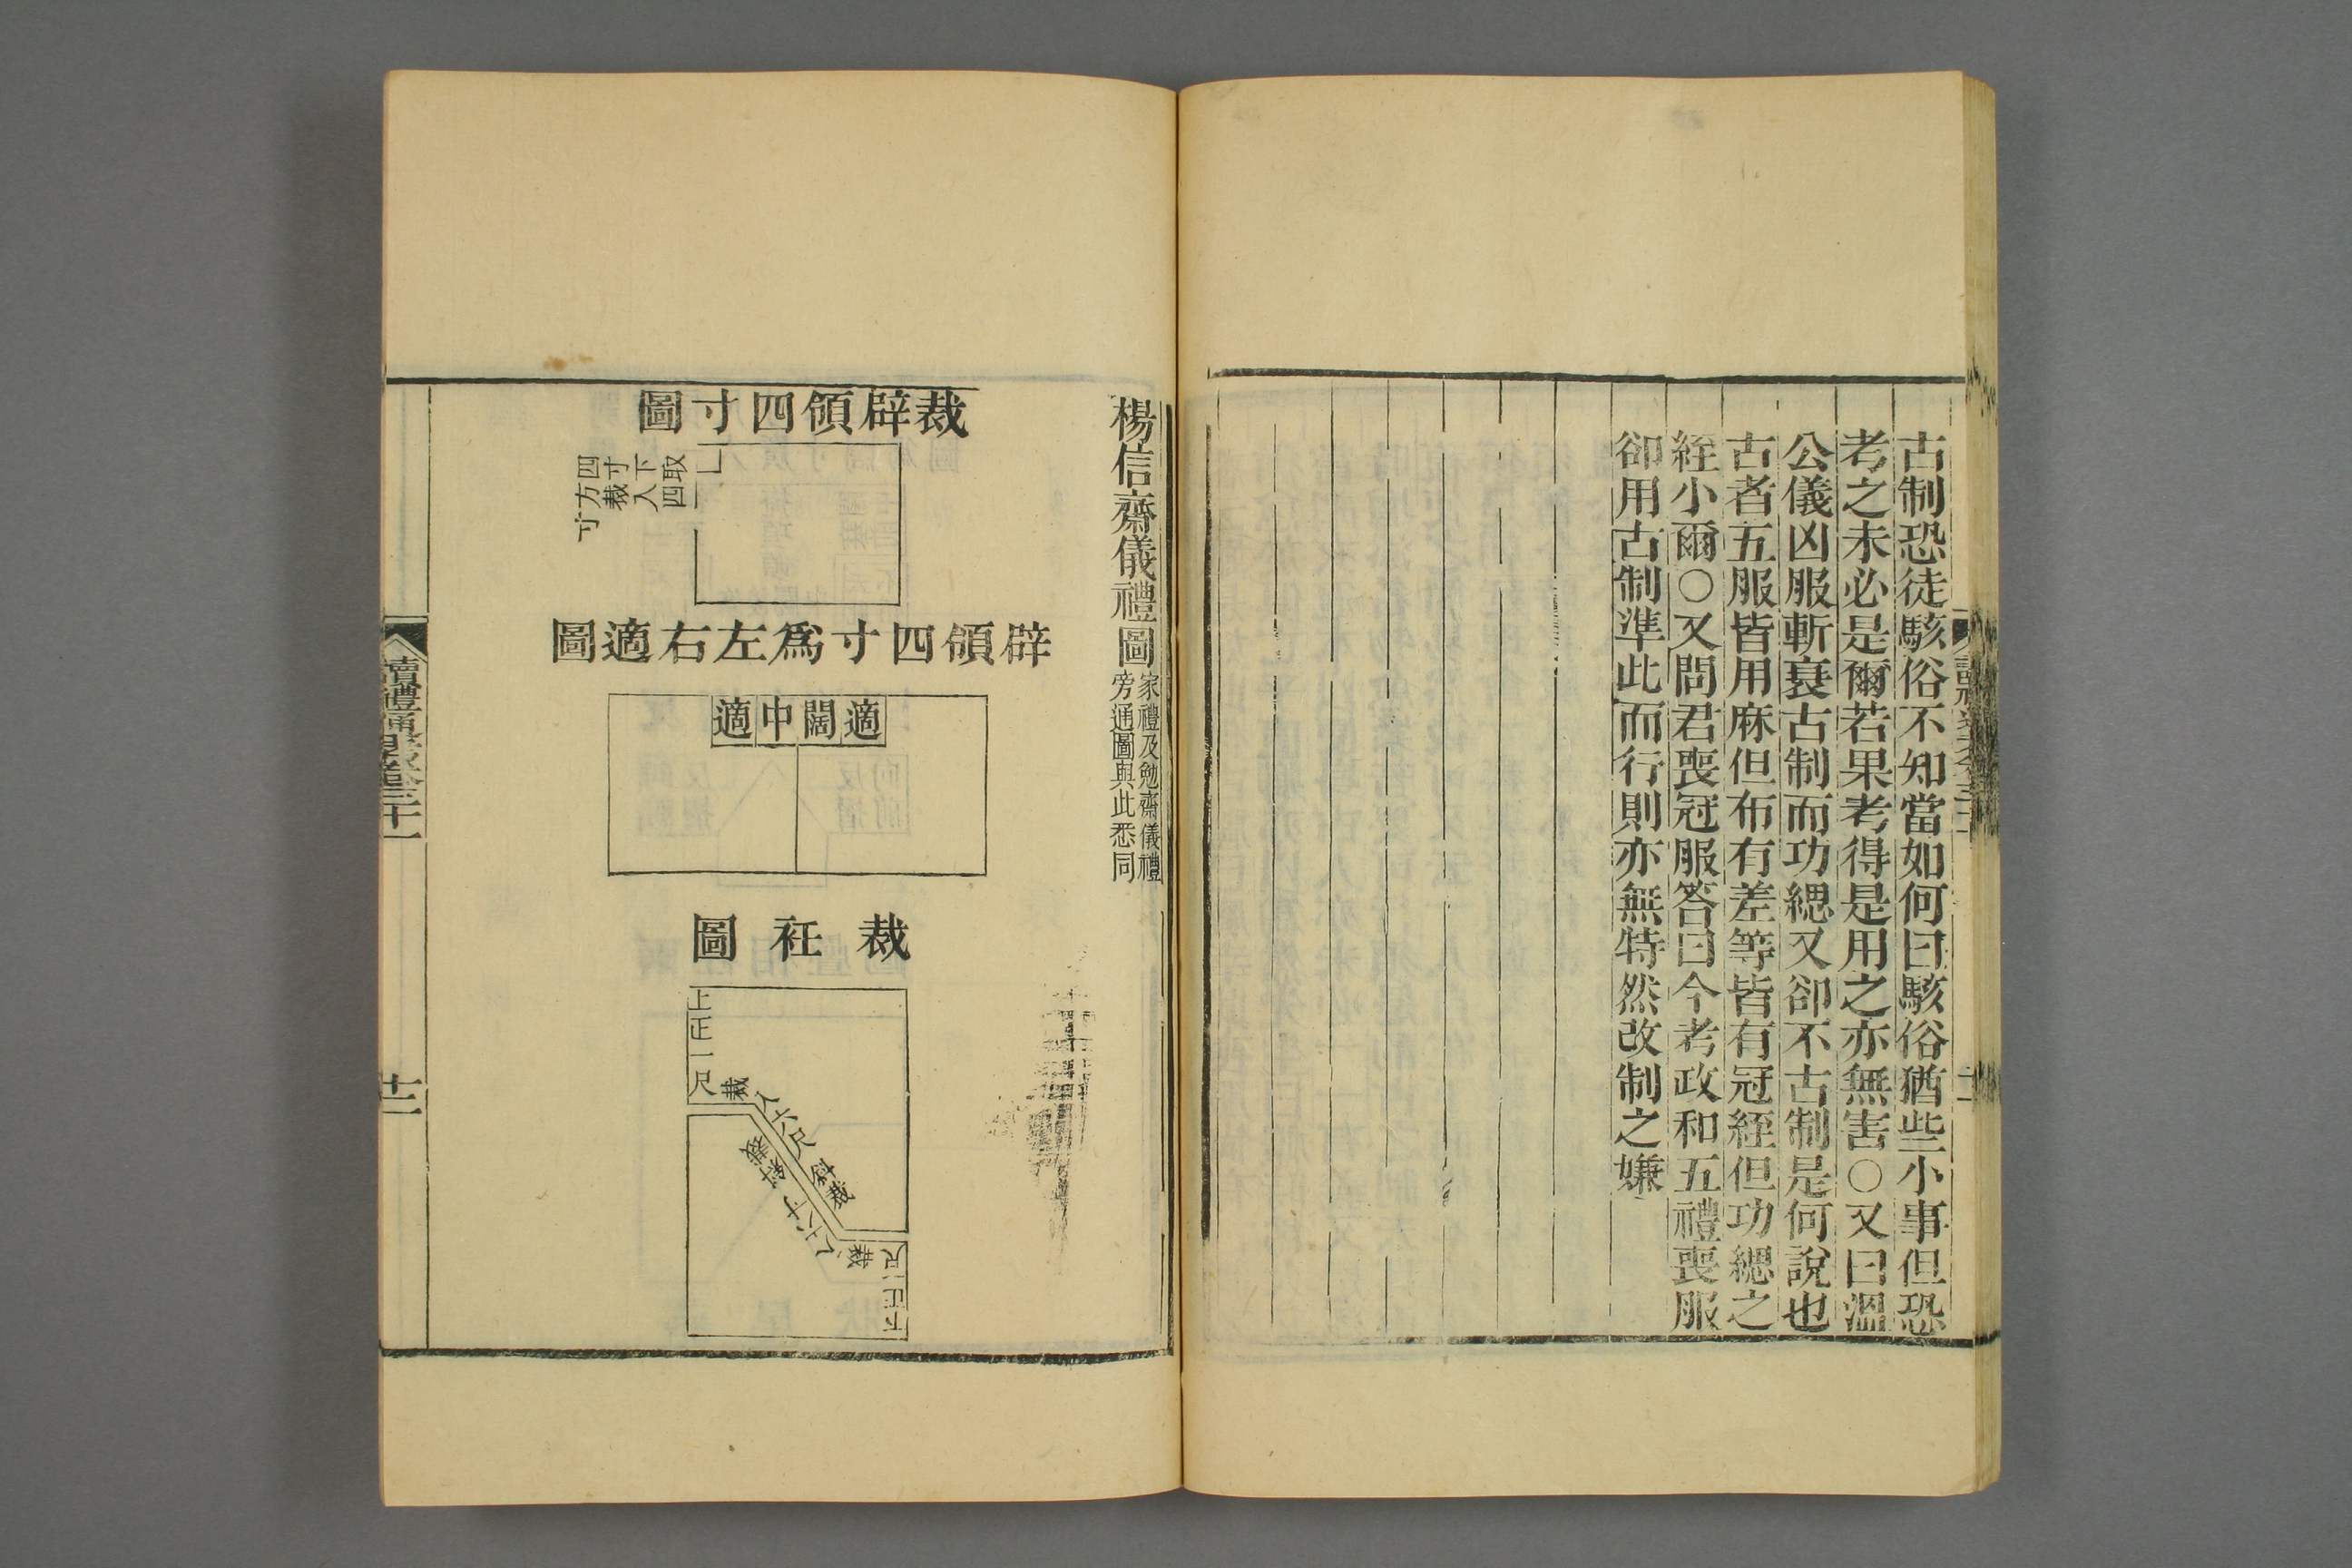 古制恐徒駭俗不知當如何曰駭俗猶些小事但恐
考之未必是爾若果考得是用之亦無害○又曰溫
公儀凶服斬衰古制而功緦又卻不古制是何說也
古者五服皆用麻但布有差等皆有冠絰但功緦之
絰小爾○又問君喪冠服答曰今考政和五禮喪服
卻用古制準此而行則亦無特然改制之嫌
楊信齋儀禮圖
家禮及勉齋儀禮
旁通圖與此悉同
裁辟領四寸圖
取四
下入
寸裁
四方寸
辟領四寸爲左右適圖
適
闊
中
適
裁衽圖
上正一尺
裁入六尺
斜裁
斜裁
裁入六寸
下正一尺
讀禮通考卷三十一
十二